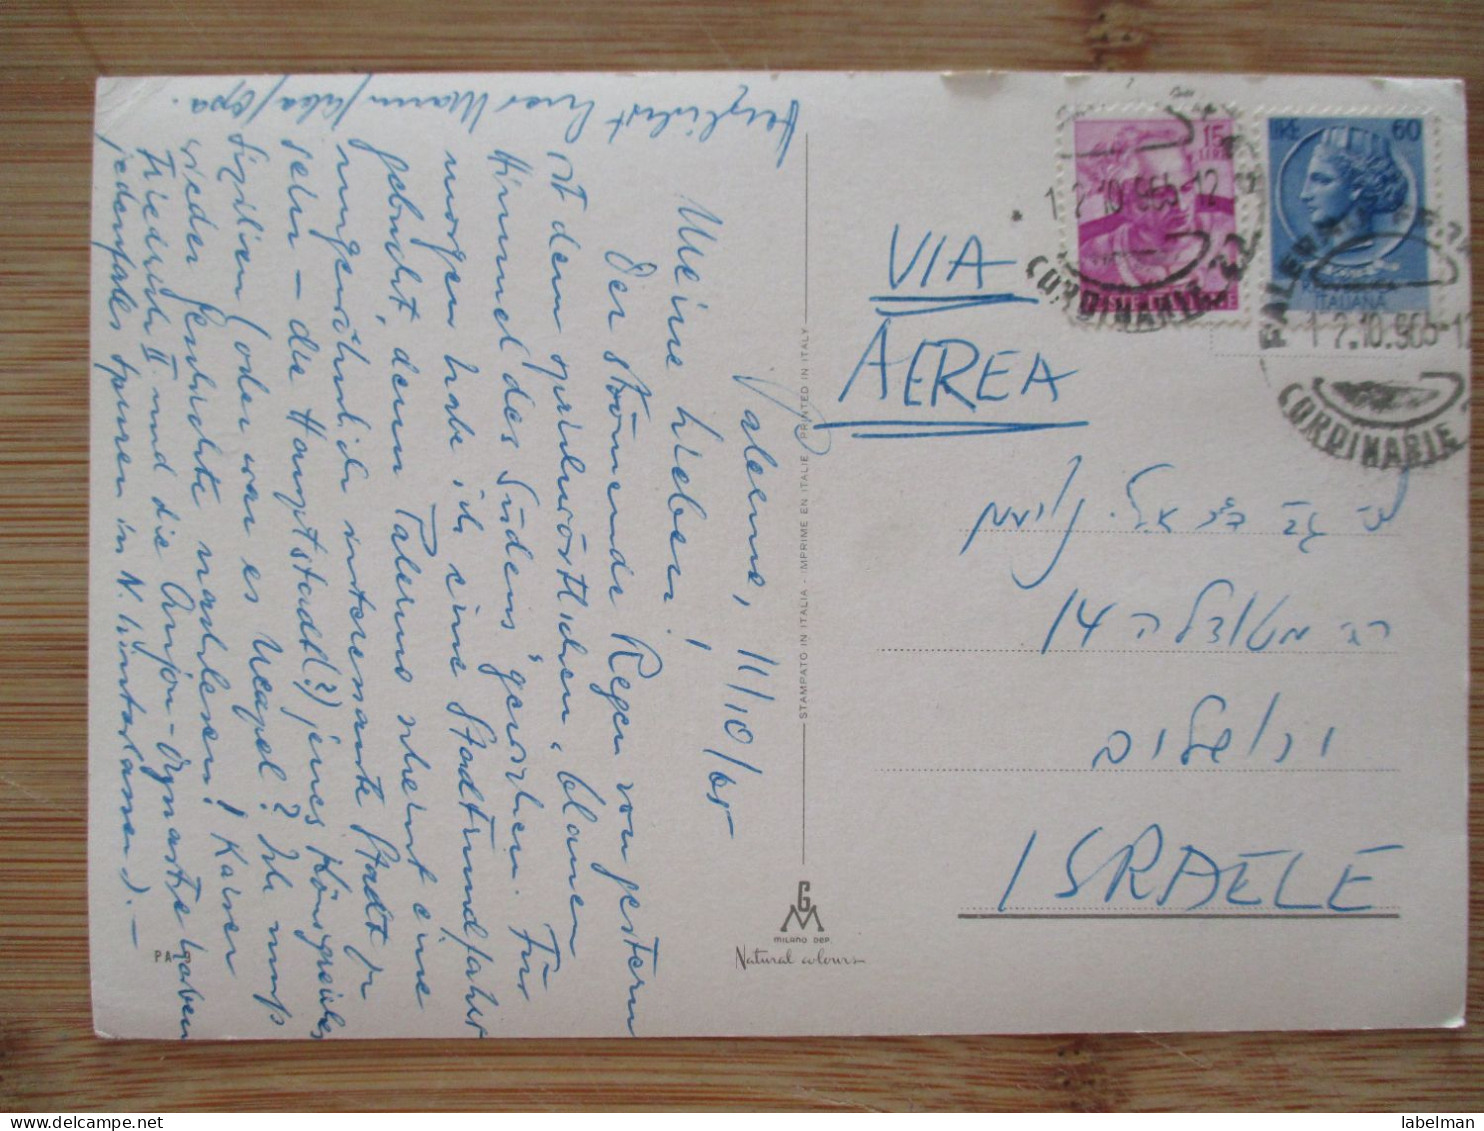 Palermo, 11/10/65
Meine Lieben,
Der strömende Regen von gestern
ist dem sprichwörtlichen „blauen
Himmel des Südens“ gewichen. Für
morgen habe ich eine Stadtrundfahrt
gebucht, denn Palermo scheint eine
ungewöhnlich interessante Stadt zu
sein – die Hauptstadt(?) jenes Königreiches
Sizilien (oder war es Neapel? Ich muß
wieder Geschichte nachlesen! Kaiser
Friedrich II und die Anjou-Dynastie haben
jedenfalls Spuren hinterlassen). –
Herzlichst Euer Mann/Aba/Opa.
STAMPATO IN ITALIA - IMPRIME EN ITALIE - PRINTED IN ITALY
G M
MILANO DEP.
Natural colours
PA
VIA
AEREA
14
ירושלים
ISRAELE
15
LIRE
LIRE 60
ITALIANA
12.10.965-12
CORDINARIE 22
PALERMO
12.10.965-12
CORDINARIE
labelman
www.delcampe.net